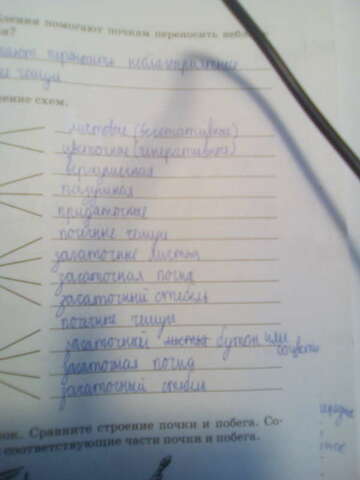 помогают почкам переносить небла
я?
переносить неблагоприятные
чешуи
ение схем.
листовые (вегетативное)
цветочное (генеративное)
верхушечная
пазушная
придаточные
почечные чешуи
зачаточные листья
зачаточная почка
зачаточный стебель
почечные чешуи
зачаточный бутон или
соцветие
зачаточная почка
зачаточный стебель
нок. Сравните строение почки и побега. Со-
соответствующие части почки и побега.